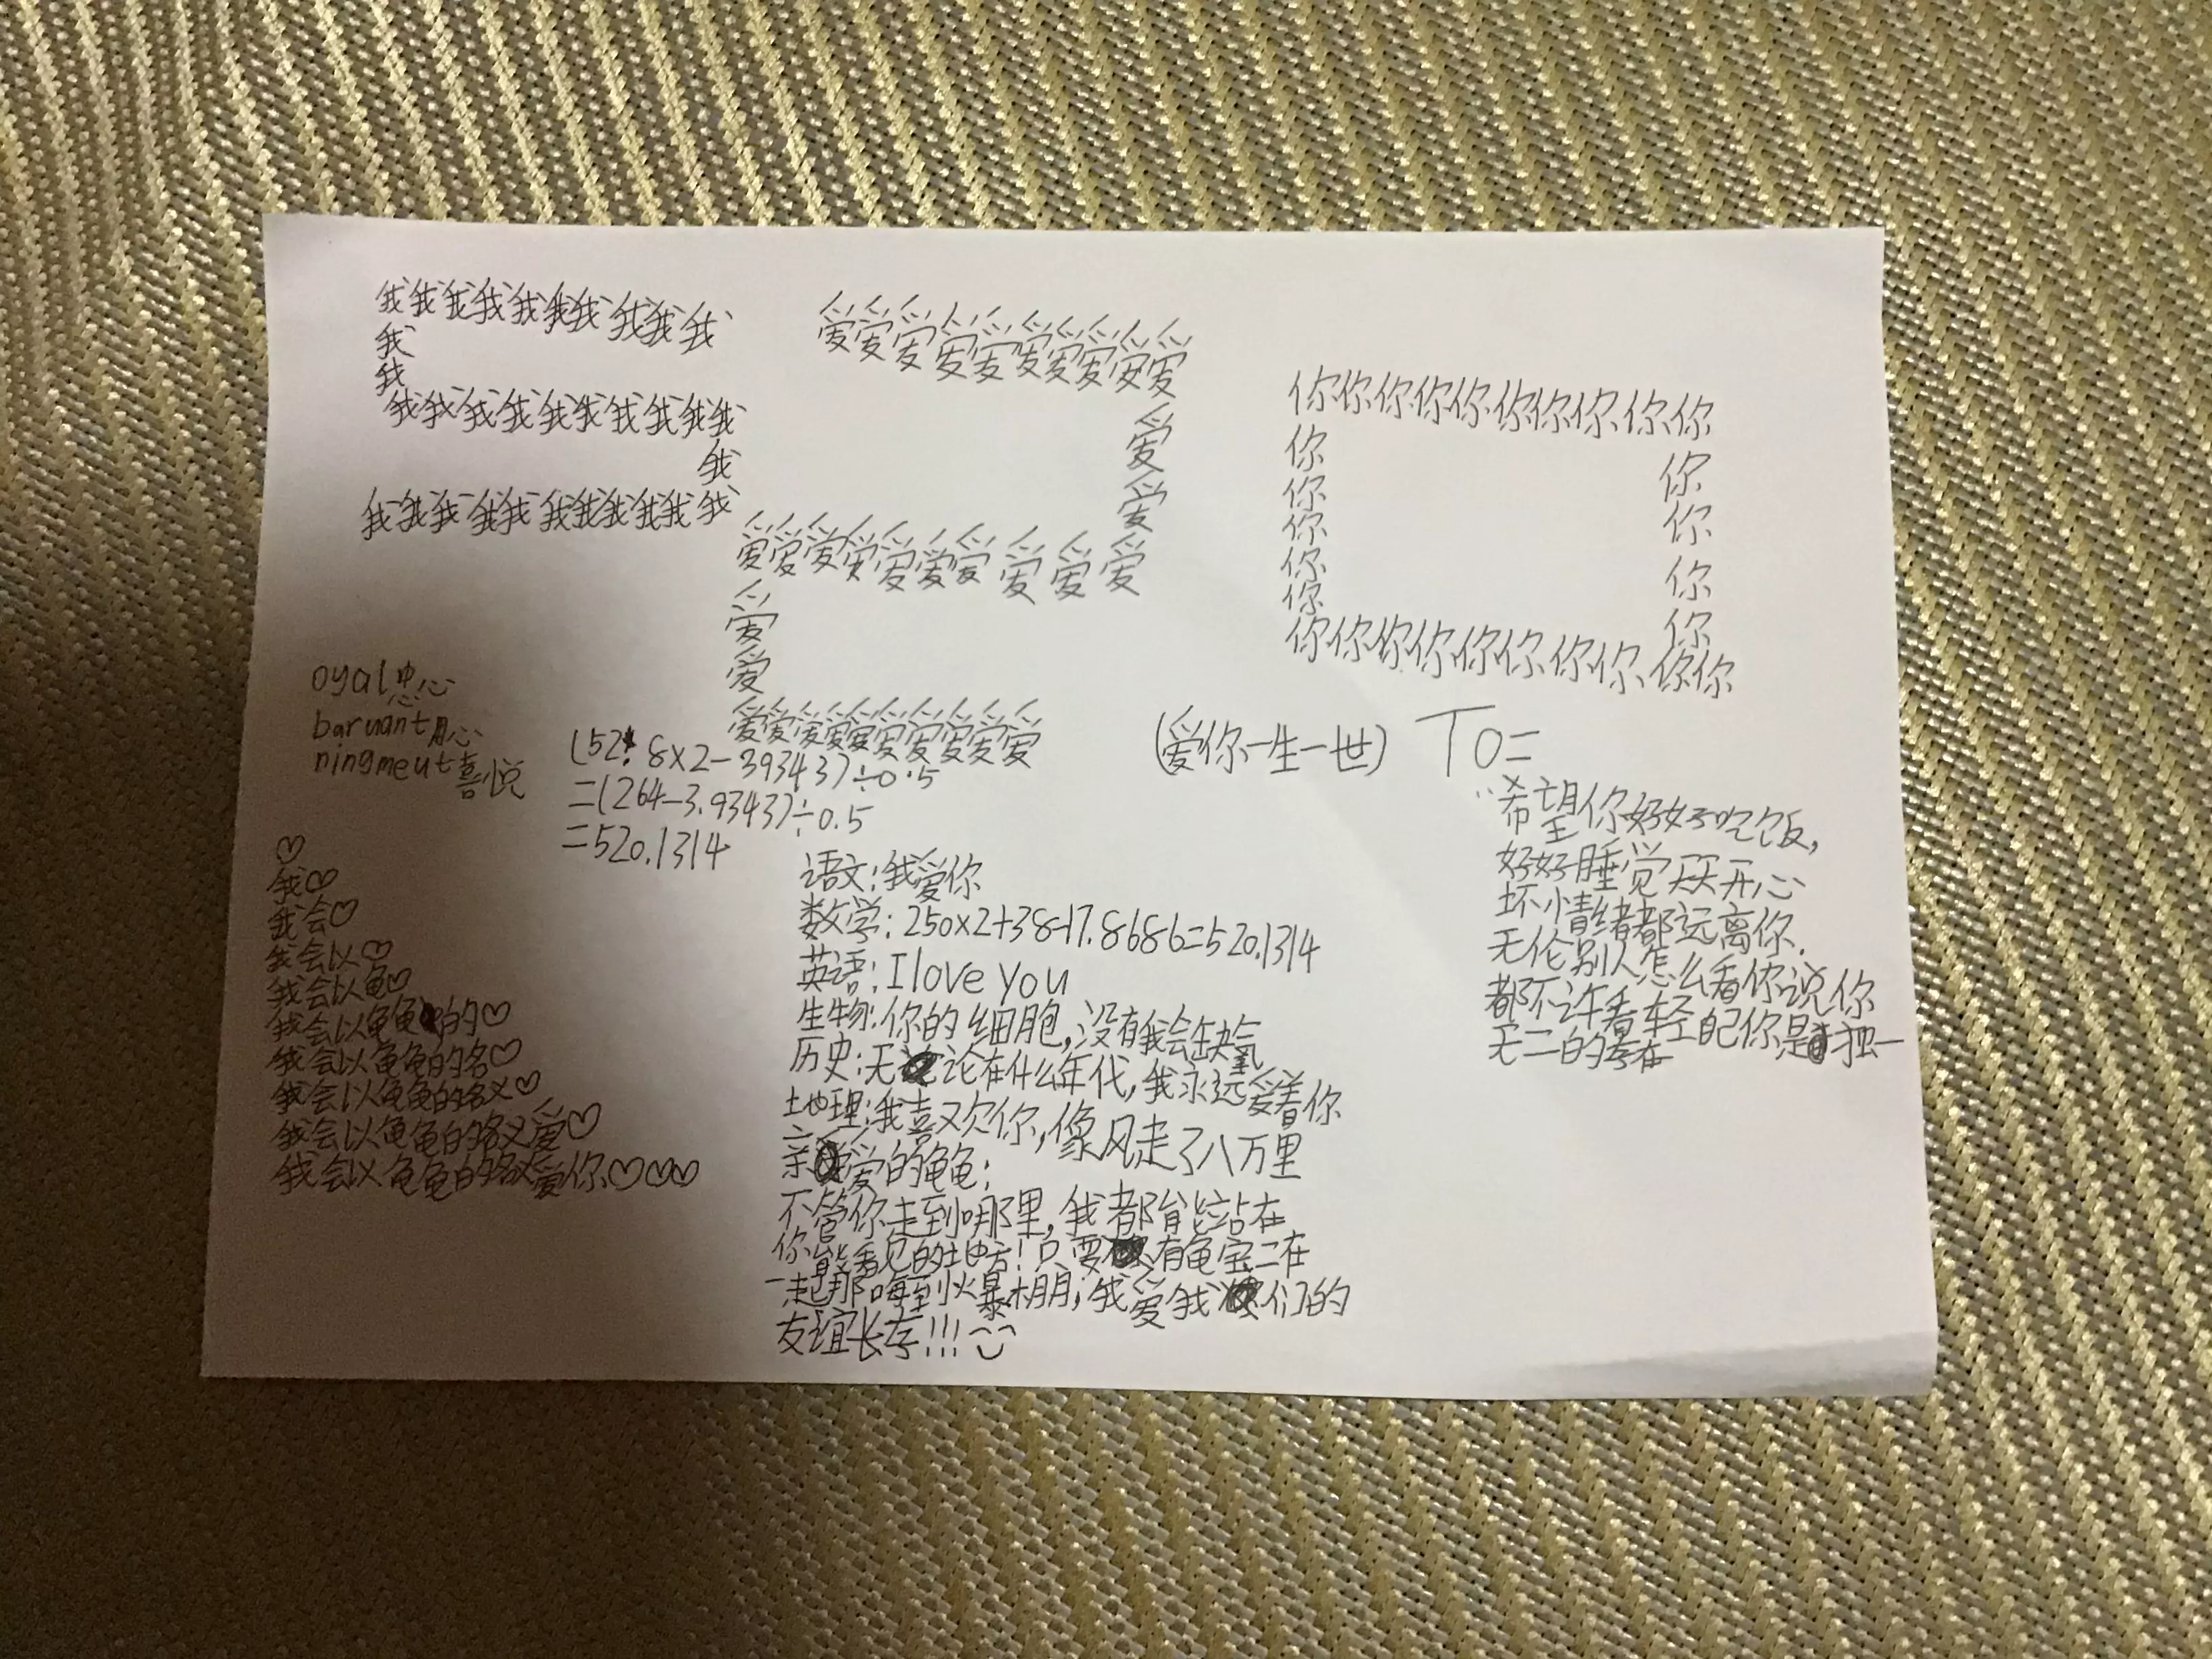 我我我我我我我我我我
我
我
我我我我我我我我我我
我
我我我我我我我我我我我
爱爱爱爱爱爱爱爱爱爱
爱
爱
爱爱爱爱爱爱爱爱爱爱
爱
爱
爱爱爱爱爱爱爱爱爱爱
你你你你你你你你你你
你 你
你 你
你 你
你 你
你
你你你你你你你你你你
oyal忠心
baruant用心
ningmeut喜悦
(52.8×2-3.9343)÷0.5
=(264-3.9343)÷0.5
=520.1314
(爱你一生一世)
To=
希望你好好吃饭,
好好睡觉天天开心
坏情绪都远离你.
无伦别人怎么看你说你
都不许看轻自己你是独一
无二的存在
♡
我♡
我会♡
我会以♡
我会以龟♡
我会以龟龟的♡
我会以龟龟的名♡
我会以龟龟的名义♡
我会以龟龟的名义爱♡
我会以龟龟的名义爱你♡♡♡
语文:我爱你
数学:250×2+38-17.8686=520.1314
英语:I love you
生物:你的细胞,没有我会缺氧
历史:无论在什么年代,我永远爱着你
地理:我喜欢你,像风走了八万里
亲爱的龟龟:
不管你走到哪里,我都能站在
你能看见的地方!只要有龟宝二在
一起那嗨到火暴棚,我爱我们的
友谊长存!!!